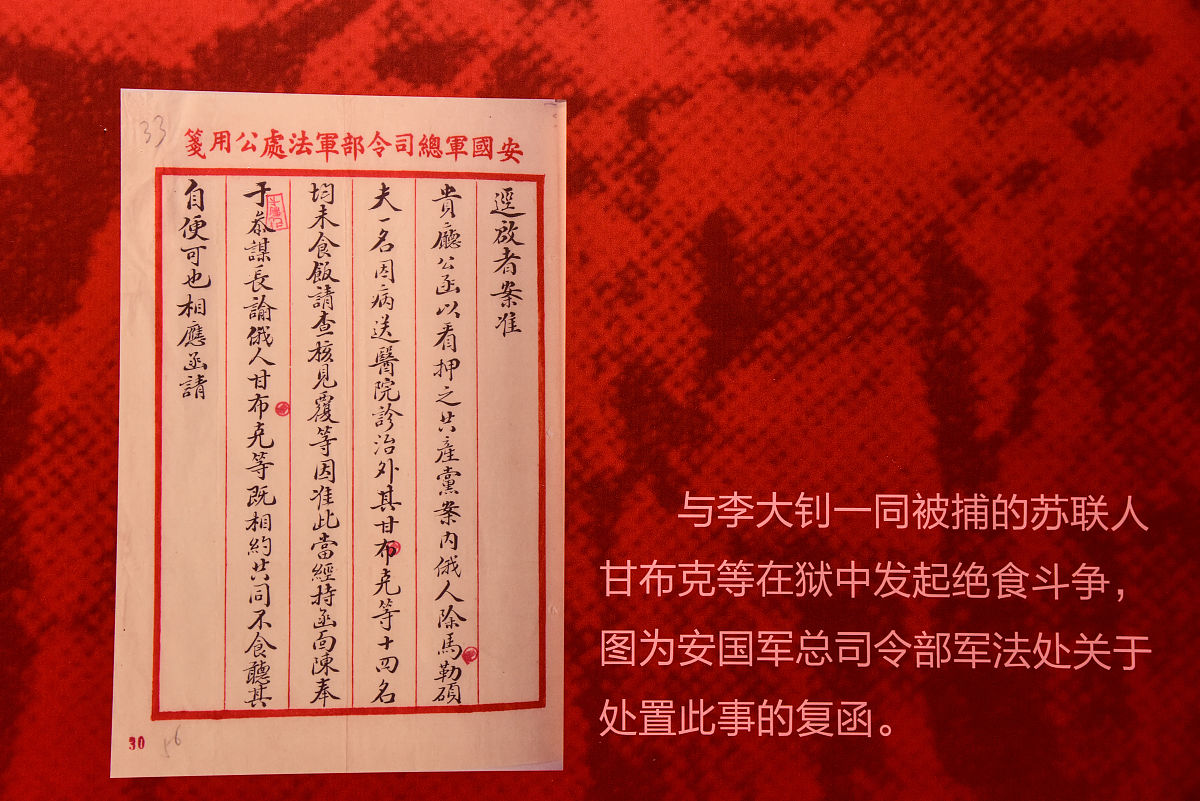 33
安國軍總司令部軍法處公用箋
逕啟者案准
貴廳公函以看押之共產黨案內俄人除馬勒碩
夫一名因病送醫院診治外其甘布克等十四名
均未食飯請查核見覆等因准此當經持函面陳奉
于參謀長諭俄人甘布克等既相約共同不食聽其
自便可也相應函請
30
56
与李大钊一同被捕的苏联人
甘布克等在狱中发起绝食斗争，
图为安国军总司令部军法处关于
处置此事的复函。